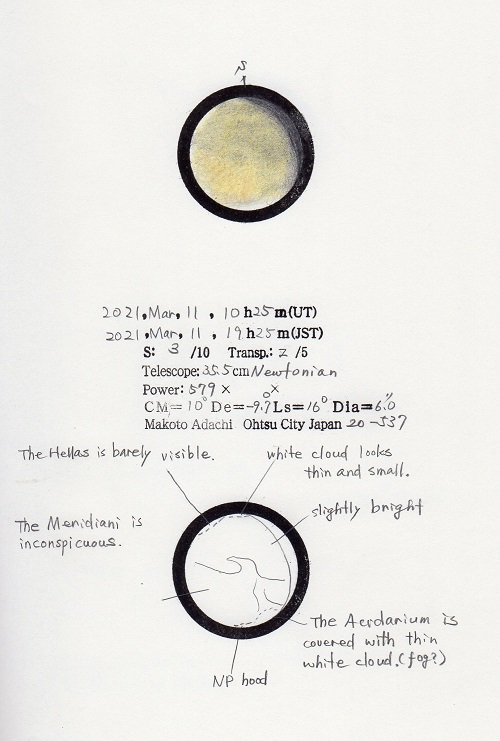 S
2021, Mar, 11, 10h25m(UT)
2021, Mar, 11, 19h25m(JST)
S: 3 /10 Transp.: 2 /5
Telescope: 35.5cm Newtonian
Power: 579× ×
CM=10° De=-9.7° Ls=16° Dia=6.0"
Makoto Adachi Ohtsu City Japan 20-537
The Hellas is barely visible.
white cloud looks
thin and small.
slightly bright
The Meridiani is
inconspicuous.
The Acidarium is
covered with thin
white cloud. (fog?)
NP hood